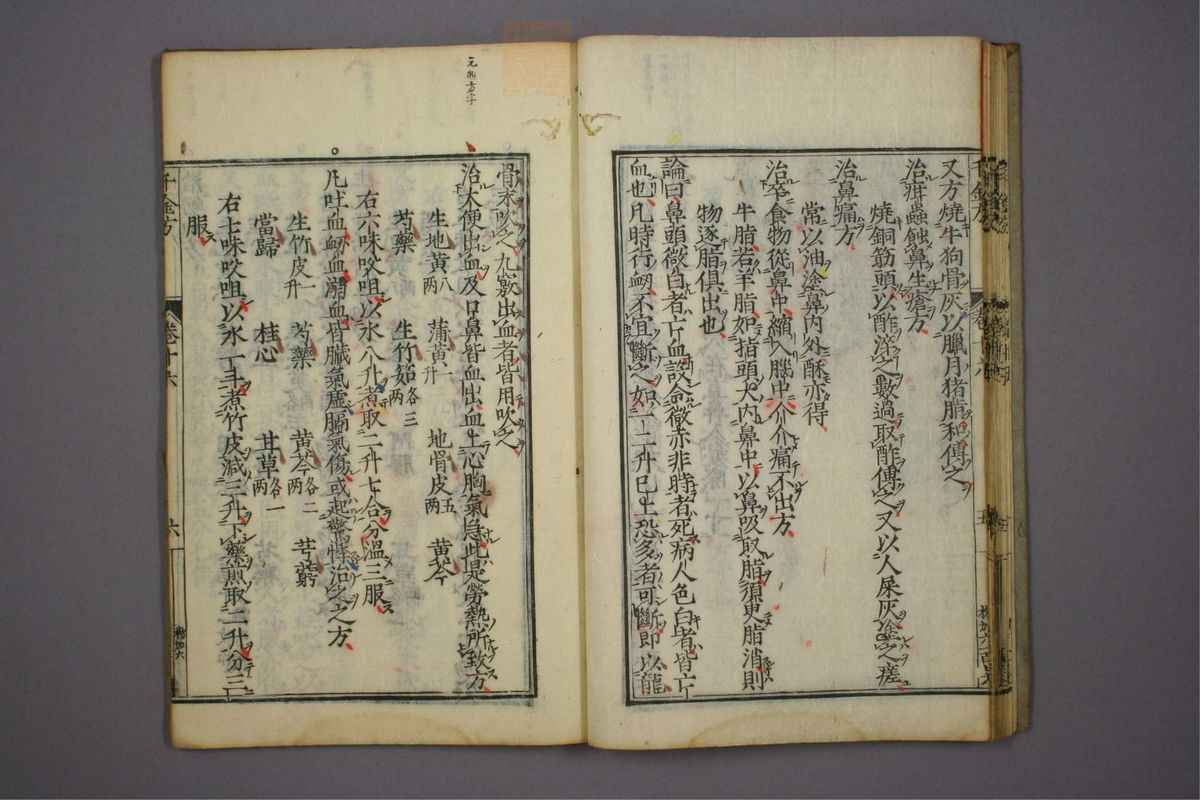 又方燒牛狗骨灰以臘月猪脂和傅之
治疳蟲蝕鼻生瘡方
燒銅筋頭以酢淬之數過取酢傅之又以人屎灰塗之瘥
治鼻痛方
常以油塗鼻内外酥亦得
治卒食物從鼻中縮入腦中介介痛不出方
牛脂若羊脂如指頭大内鼻中以鼻吸取脂須臾脂消則
物逐脂俱出也
論曰鼻頭微白者亡血設令微赤非時者死病人色白者皆亡
血也凡時行衂不宜斷之如一二升已上恐多者可斷即以龍
骨末吹之九竅出血者皆用吹之
治大便出血及口鼻皆血出血上心胸氣急此是勞熱所致方
生地黄八两 蒲黄一升 地骨皮五两 黄芩
芍藥 生竹筎各三两
右六味㕮咀以水八升煮取二升七合分溫三服
凡吐血衂血溺血皆臟氣虛膈氣傷或起驚悸治之方
生竹皮一升 芍藥 黄芩各二两 芎藭
當歸 桂心 甘草各一两
右七味㕮咀以水一斗煮竹皮減三升下藥煎取二升分三
服
千金方
卷十六
六